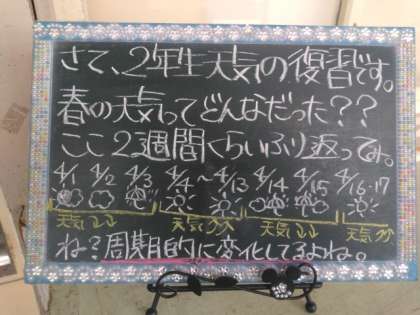 さて、2年生天気の復習です。
春の天気ってどんなだった??
ここ2週間くらいふり返ってみ。
4/1 4/2 4/3 4/4 ~ 4/13 4/14 4/15 4/16・17
天気 天気 天気 天気
ね?周期的に変化してるよね。